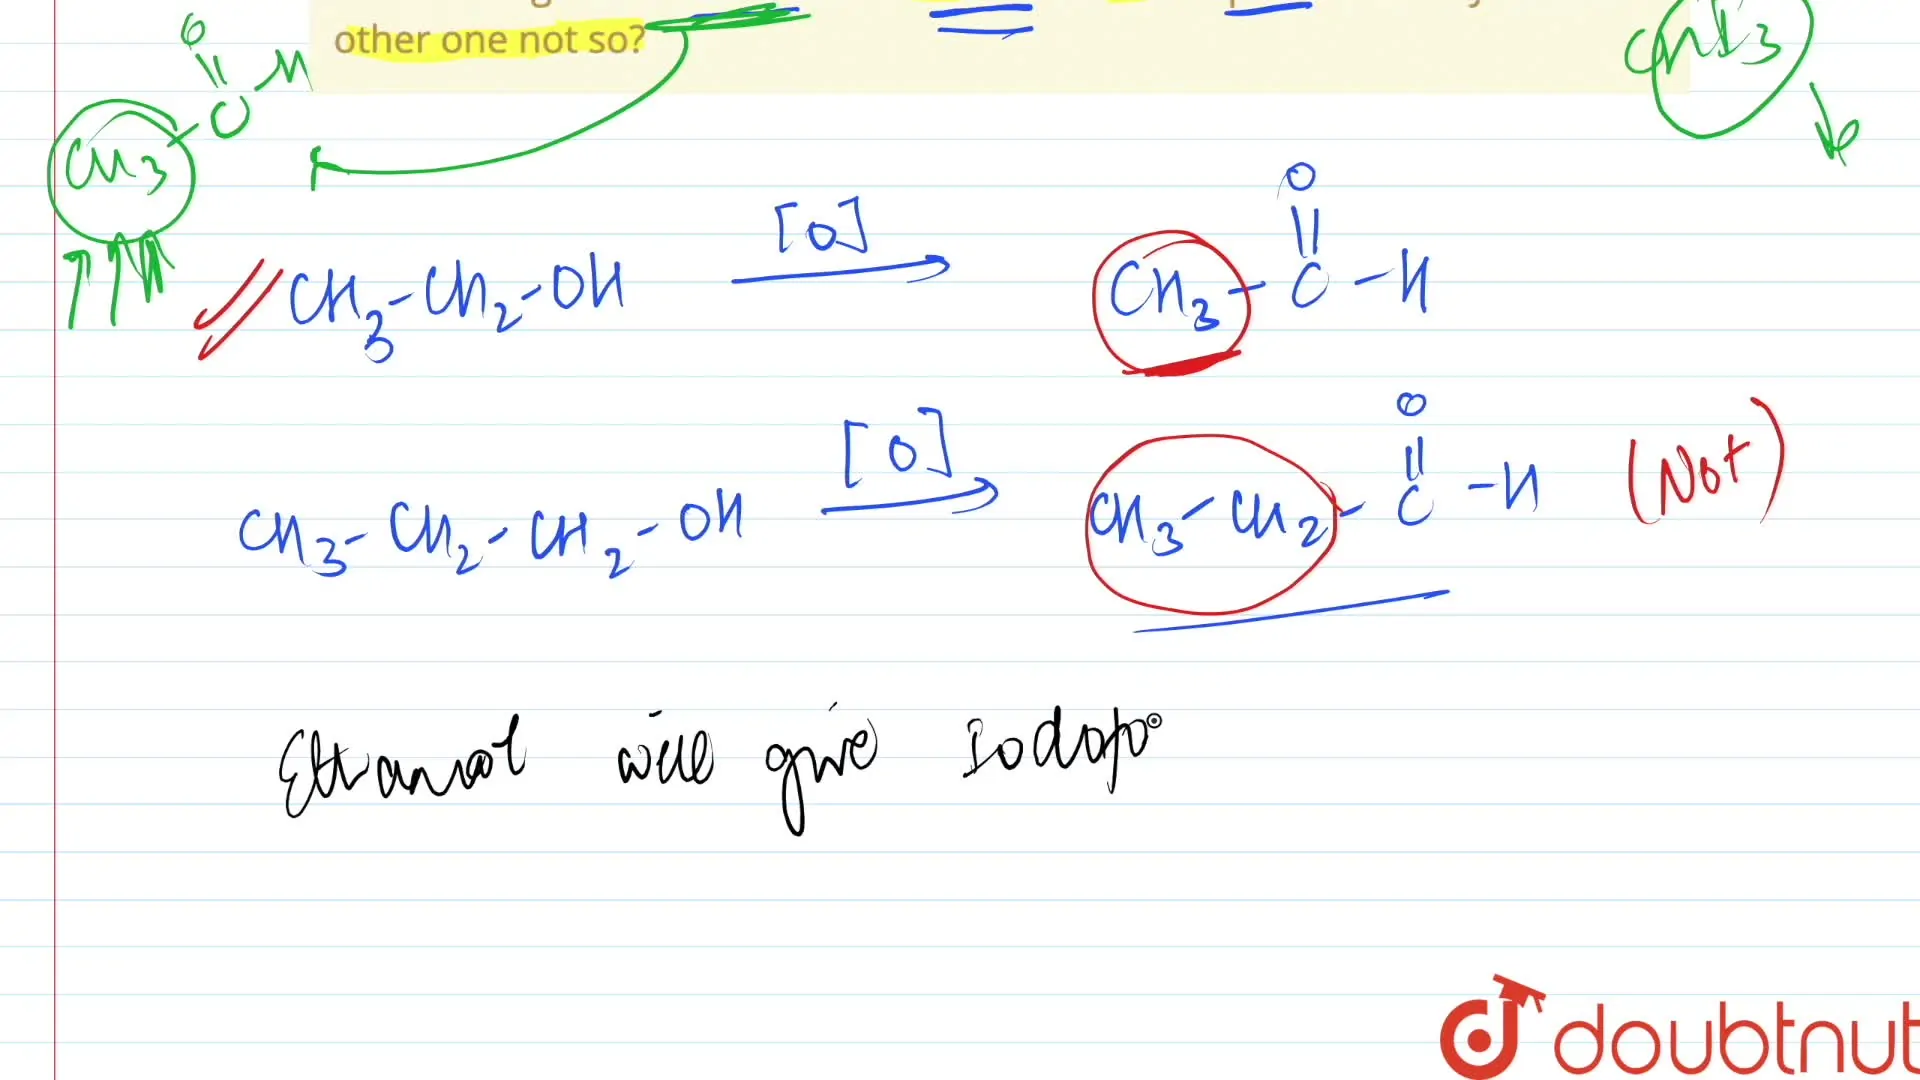 other one not so?
O
||
CH3-C-H
CHI3
CH3-CH2-OH [O] → CH3-C-H
O
||
CH3-CH2-CH2-OH [O] → CH3-CH2-C-H (Not)
O
||
Ethanol will give Iodofo
doubtnut